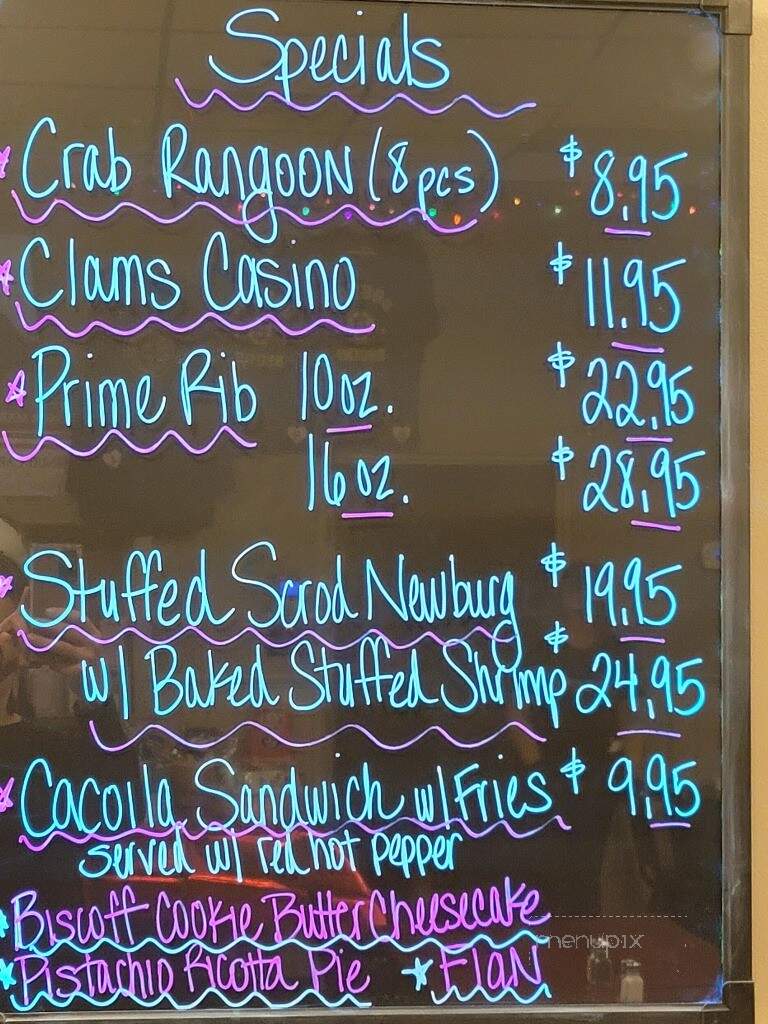 Specials
Crab Rangoon (8pcs) $8.95
Clams Casino $11.95
Prime Rib 10oz. $22.95
16oz. $28.95
Stuffed Scrod Newburg $19.95
w/ Baked Stuffed Shrimp $24.95
Cacoila Sandwich w/Fries $9.95
served w/ red hot pepper
Biscoff Cookie Butter Cheesecake
menupix
Pistachio Ricotta Pie Flan